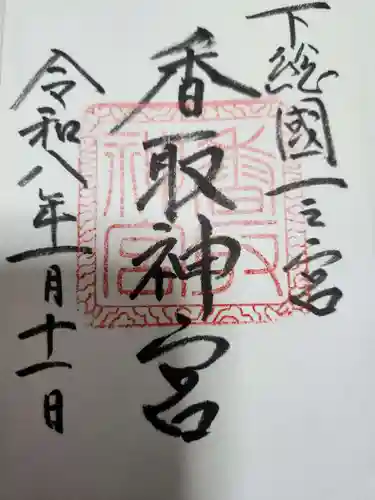 下総國一之宮
香取神宮
令和八年一月十一日
香取神宮